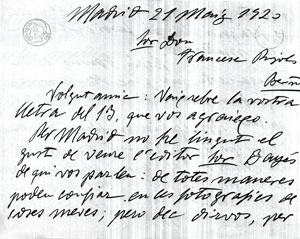 Madrid 21 Maig 1920
Sor Don
Francesc Pujols
Volgut amic: Vaig rebre la vostra
lletra del 13, que vos agraeixo.
Per Madrid no he tingut el
gust de veure l'editor Sor
de qui vos parleu: de totes maneres
poden confiar en les fotografies de
coses meves; pero dec dirvos, per